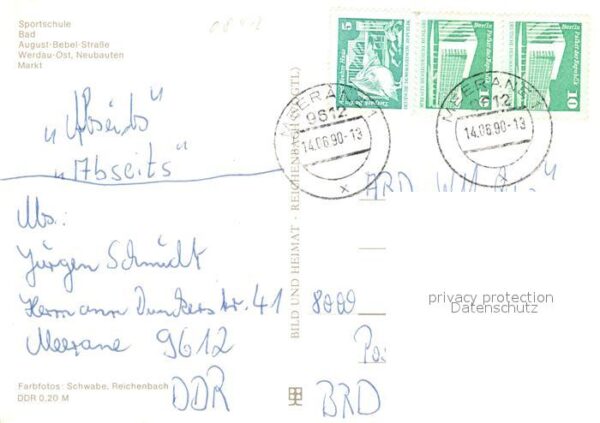 Sportschule
Bad
August-Bebel-Straße
Werdau-Ost, Neubauten
Markt
"Abseits"
"Abseits"
Abs.:
Jürgen Schmidt
Hermann Dunkerstr. 41
Meerane 9612
DDR
Farbfotos: Schwabe, Reichenbach
DDR 0,20 M
BILD UND HEIMAT · REICHENBACH (VOGTL)
5
10
Berlin
Palast der Republik
10
Berlin
Palast der Republik
MEERANE 1
9612
14.06.90-13
MEERANE 1
9612
14.06.90-13
ARD
8000
BRD
privacy protection
Datenschutz